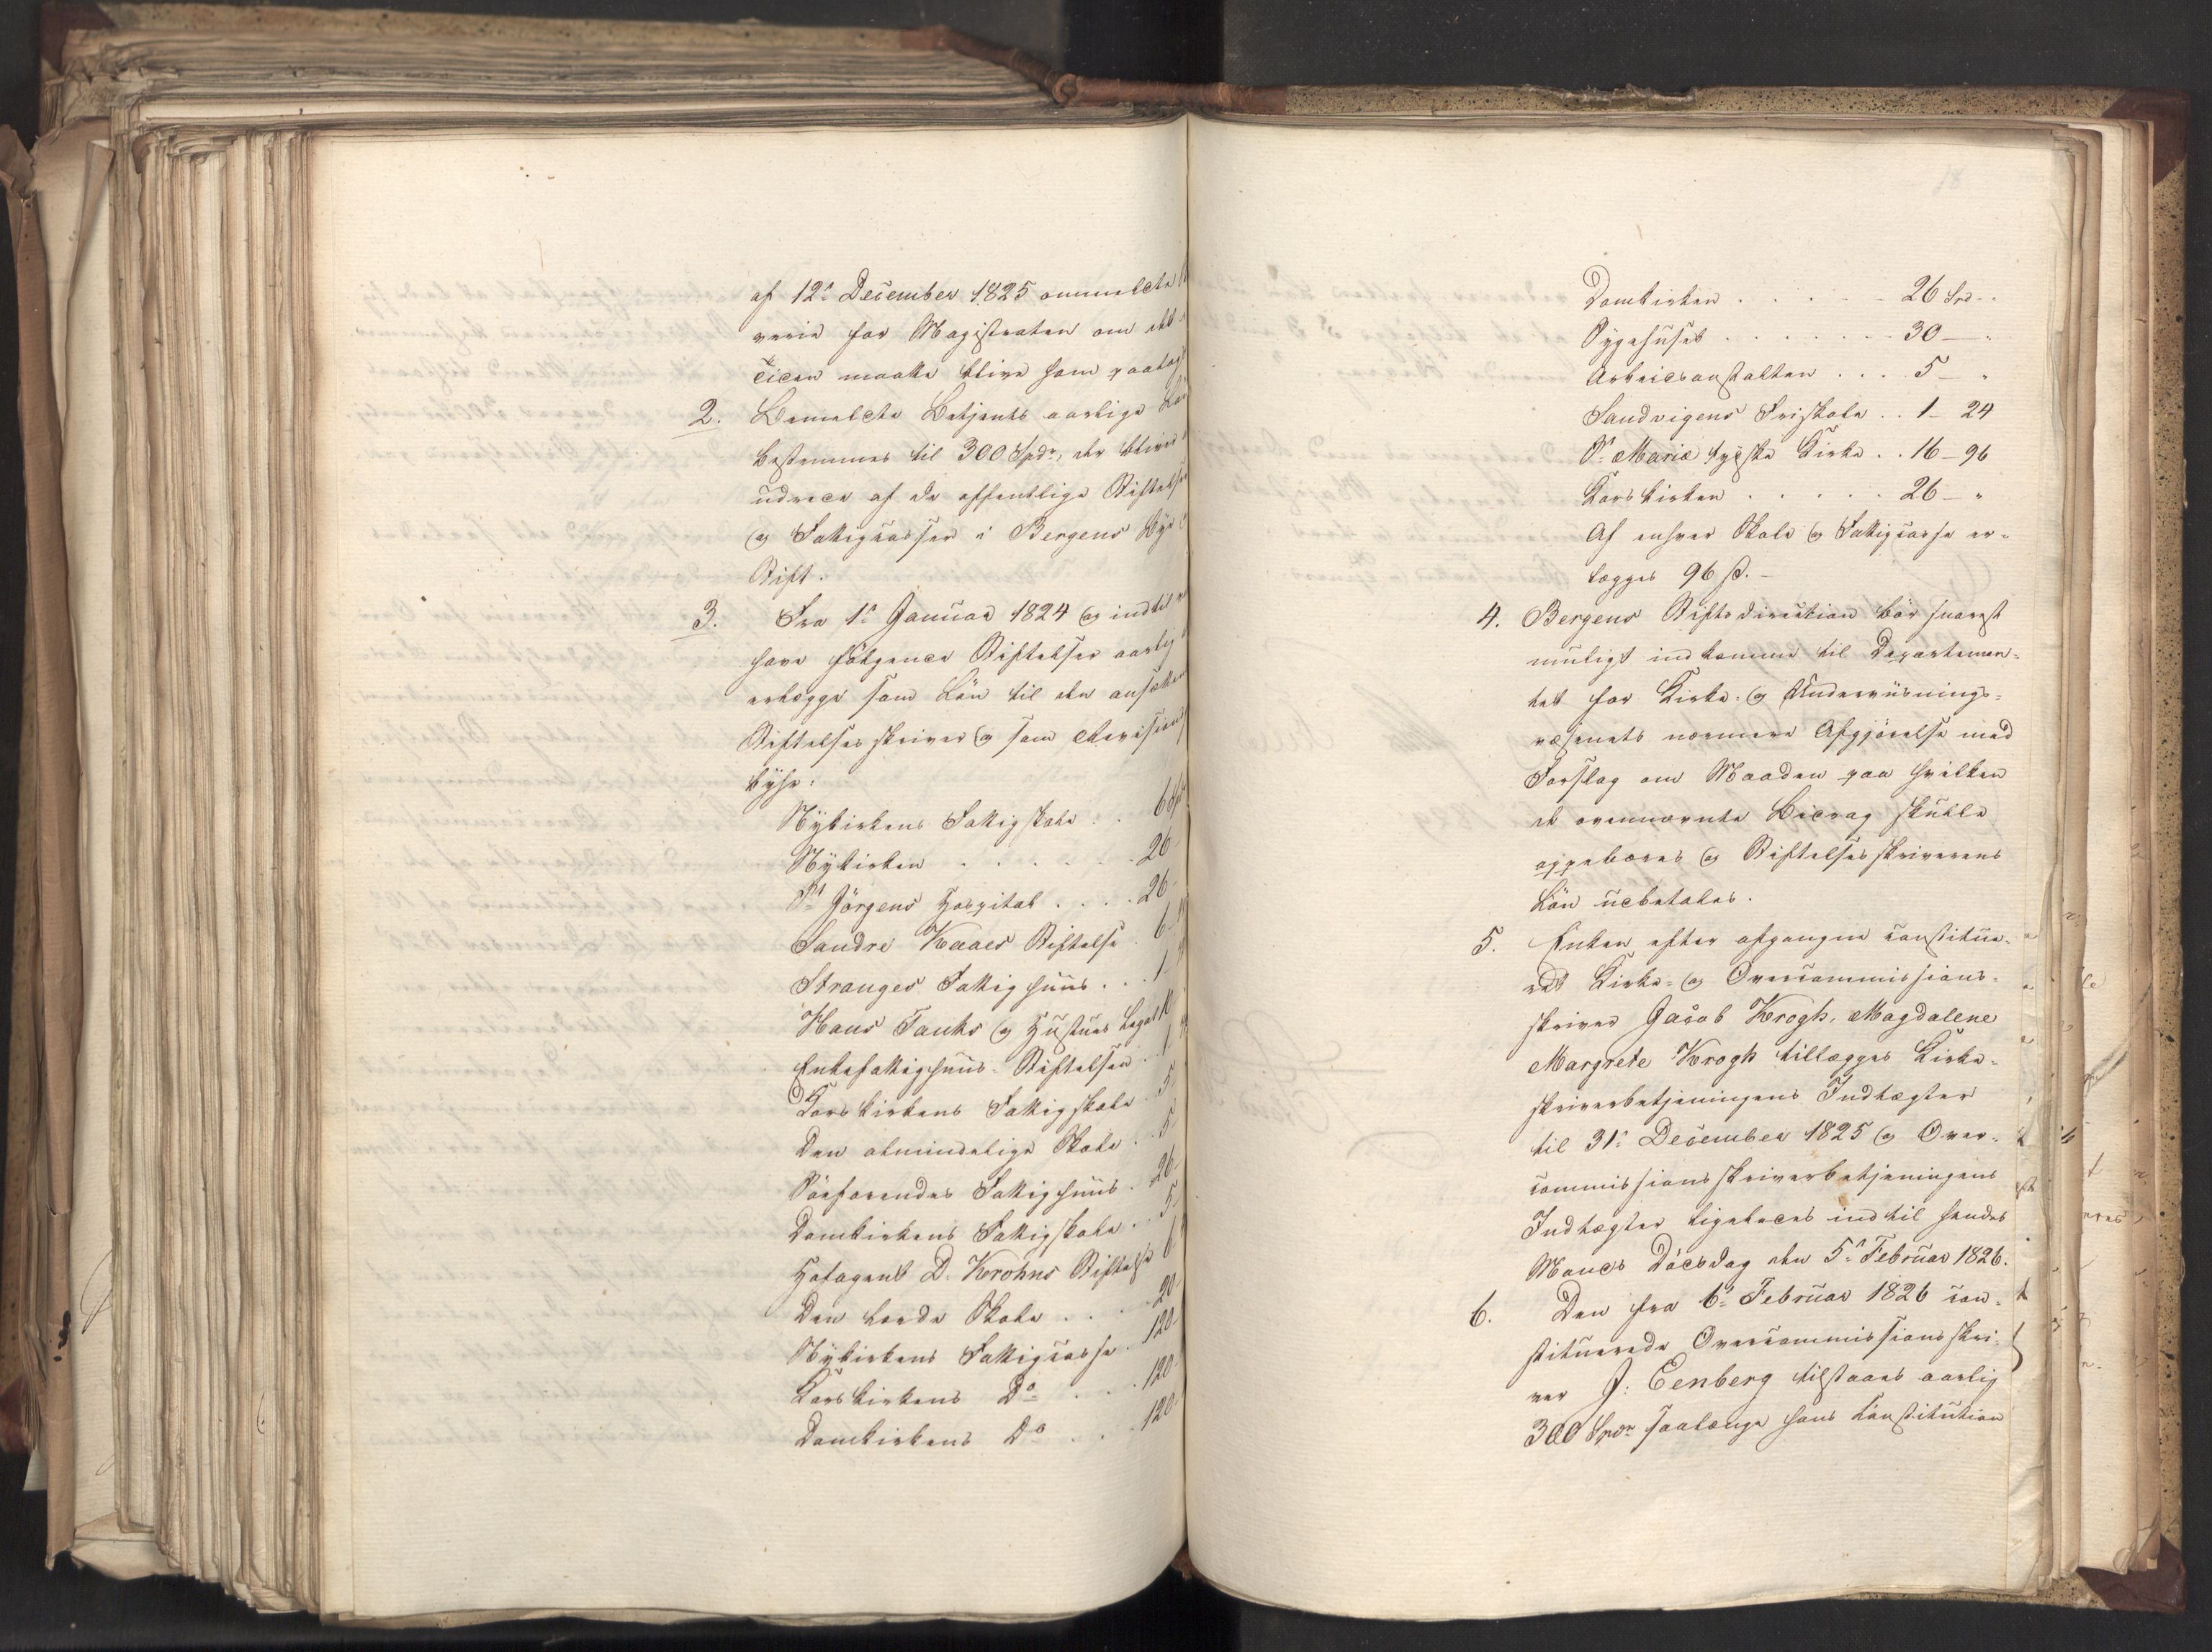 af 12te December 1825 ommeldte
verie for Magistraten om det
tiden maatte blive ham paalagt
2. Bemeldte Betjents aarlige Løn
bestemmes til 300 Spdr, der bliver
udrede af de offentlige Stiftelser
og Fattigcasser i Bergens Bye
Stift.
3. Fra 1te Januar 1824 og indtil
have følgende Stiftelser aarlig
erlægge som Løn til den ansatte
Stiftelsesskriver og som Revisions
bøhr:
Nÿkirkens Fattigskole . . 6
Nÿkirken . . . . . . 26
St Jörgens Hospital . . . . 26
Sandre Kaaes Stiftelse . 6
Stranges Fattighuus . . . 1
Hans Tanks og Hustrues Legat
Enkefattighuus-Stiftelsen . 1
Korskirkens Fattigskole . 5
Den almindelige Skole . . 5
Søefarendes Fattighuus . 26
Domkirkens Fattigskole . . 5
Hofagent D. Krohns Stiftelse 6
Den lærde Skole . . . 20
Nÿkirkens Fattigcasse . 120
Korskirkens Do . . . . 120
Domkirkens Do . . . 120
18
Domkirken . . . . . 26 Spd "
Sygehuset . . . . . . . 30 – "
Arbeidsanstalten . . . . 5 – "
Sandvigens Friskole . . 1 – 24
St. Mariæ tydske Kirke . . 16 – 96
Korskirken . . . . . 26 – "
Af enhver Skole og Fattigcasse er-
lægges 96 ß. –
4. Bergens Stiftsdirection bør snarest
muligt indkomme til Departemen-
tet for Kirke- og Underviisnings-
væsenets nærmere Afgjørelse med
Forslag om Maaden paa hvilken
de ovennævnte Bidrag skulle
oppebæres og Stiftelsesskriverens
Løn udbetales.
5. Enken efter afgangne constitue-
ret Kirke- og Overcommissions-
skriver Jacob Krogh, Magdalene
Margrete Krogh tillægges Kirke-
skriverbetjeningens Indtægter
til 31te December 1825 og Over-
commissionsskriverbetjeningens
Indtægter ligeledes indtil hendes
Mands Dødsdag den 5te Februar 1826.
6. Den fra 6te Februar 1826 con-
stituerede Overcommissionsskri-
ver J: Eenberg tilstaaes aarlig
300 Spdr saalænge hans Constitution